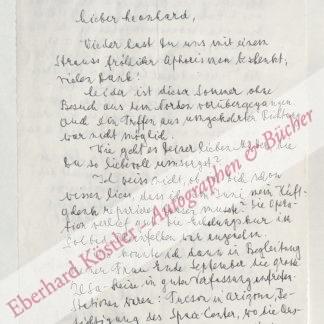 Lieber Leonhard,
Wieder hast Du uns mit einem
Strauss fröhlicher Aphorismen beschenkt,
vielen Dank!
Leider ist dieser Sommer ohne
Besuch aus dem Norden vorübergegangen
auch ein Treffen aus umgekehrter Richtung
war nicht möglich.
Wie geht es Deiner lieben
Du so liebevoll umsorgst?
Ich weiss nicht, ob ich Dich schon
wissen liess, dass ich im Juni mein Hüft-
gelenk reparieren lassen musste? Die Opera-
tion verlief gut, die Erholungskur in
war angenehm.
konnte ich dann in Begleitung
meiner Frau Ende September die grosse
USA-Reise in guter Verfassung antreten.
Stationen waren: Tucson in Arizona, Be-
sichtigung des Space Center, wo die
Eberhard Köstler Autographen & Bücher